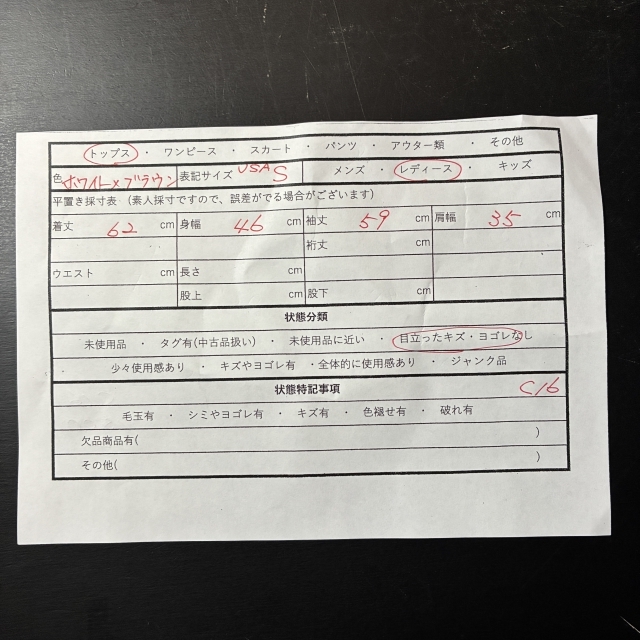 トップス ・ ワンピース ・ スカート ・ パンツ ・ アウター類 ・ その他
色 ホワイト×ブラウン 表記サイズ USA S メンズ ・ レディース ・ キッズ
平置き採寸表 (素人採寸ですので、誤差がでる場合がございます)
着丈 62 cm 身幅 46 cm 袖丈 59 cm 肩幅 35 cm
裄丈 cm
ウエスト cm 長さ cm
股上 cm 股下 cm
状態分類
未使用品 ・ タグ有(中古品扱い) ・ 未使用品に近い ・ 目立ったキズ・ヨゴレなし
・ 少々使用感あり ・ キズやヨゴレ有 ・全体的に使用感あり ・ ジャンク品
状態特記事項 C16
毛玉有 ・ シミやヨゴレ有 ・ キズ有 ・ 色褪せ有 ・ 破れ有
欠品商品有( )
その他( )